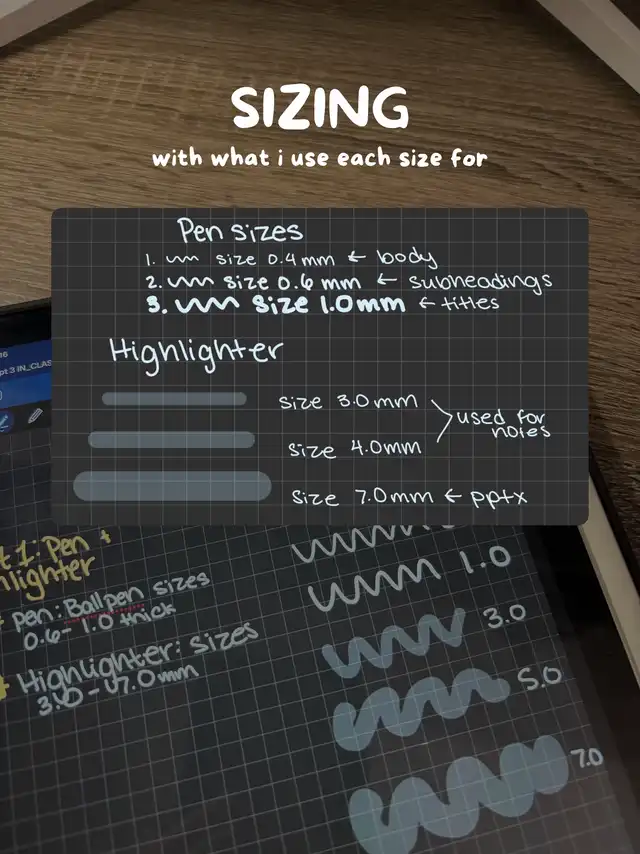 SIZING
with what i use each size for
Pen sizes
1. size 0.4 mm ← body
2. size 0.6 mm ← subheadings
3. size 1.0mm ← titles
Highlighter
size 3.0mm
size 4.0mm
used for
notes
size 7.0mm ← pptx
pt.3 IN_CLAS
t 1: Pen +
hlighter
pen: Ballpen sizes
0.6 - 1.0 thick
Highlighter: sizes
3.0 - 7.0mm
1.0
3.0
5.0
7.0